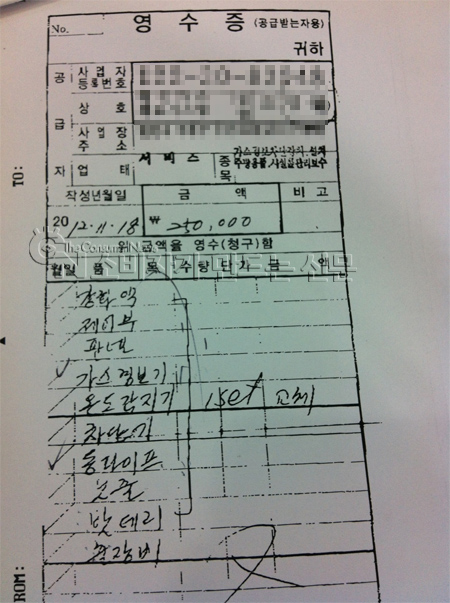 No. 영 수 증 (공급받는자용)
귀하
공 사업자 등록번호
급 상 호
사업장 주소
자 업 태 서비스 종목 가스경보차단장치, 설치 주방용품, 시설관리보수
작성년월일 금 액 비 고
20 12. 11. 18 ₩ 250,000
위 금액을 영수(청구)함
월일 품 목 수량 단가 금 액
TheConsumer
소비자가만드는신문
제어부
판넬
가스경보기
온도감지기 1set 교체
차단기
동파이프
노즐
밧데리
TO:
ROM: